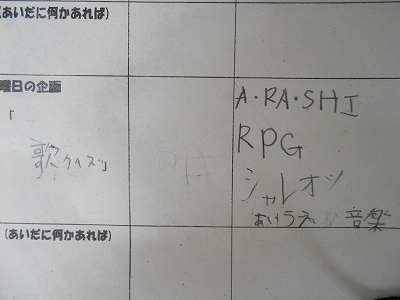 (あいだに何かあれば)
曜日の企画
「
歌クイズ」
A・RA・SHI
RPG
シャレオツ
あいうえ 音楽
(あいだに何かあれば)